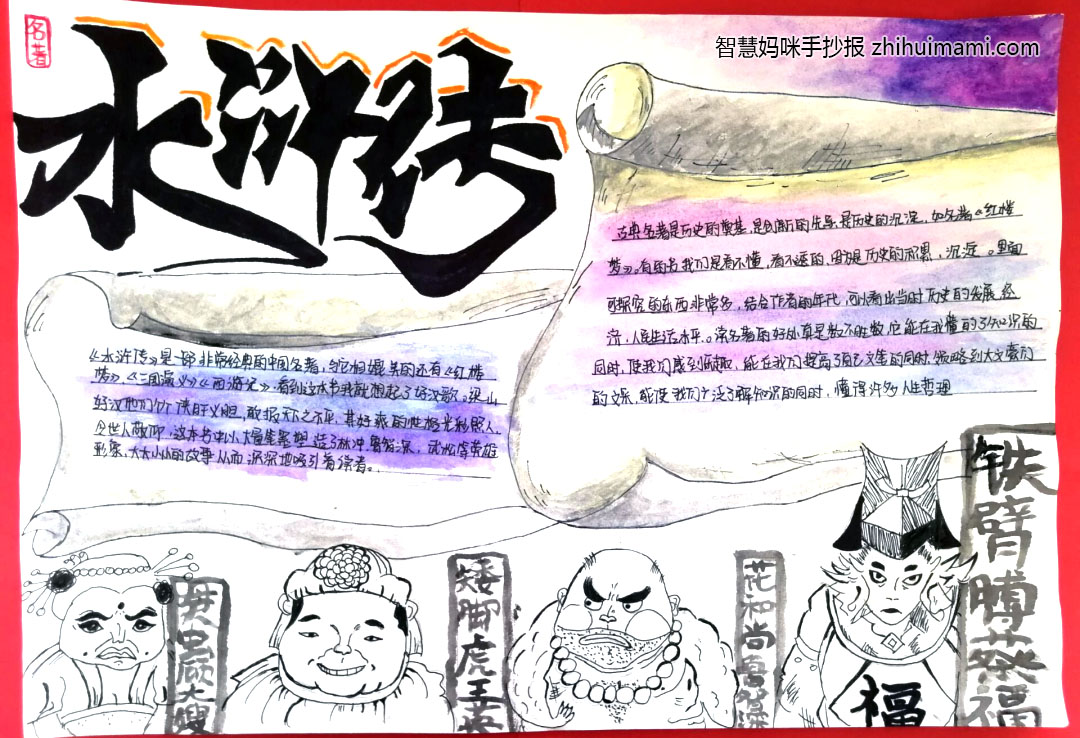 名著
水浒传
智慧妈咪手抄报 zhihuimami.com
古典名著是历史的奠基,是创新的先导,是历史的沉淀,如名著《红楼
梦》。有的名我们是看不懂,看不透的,因为是历史的积累,沉淀。里面
可探究的东西非常多,结合作者的年代,可以看出当时历史的发展,经
济,人民生活水平。读名著的好处真是数不胜数,它能在我懂的了知识的
同时,使我们感到乐趣,能在我们提高了自己文集的同时,领略到大文豪们
的文采,能使我们广泛了解知识的同时,懂得许多人生哲理
《水浒传》是一部非常经典的中国名著,与它相媲美的还有《红楼
梦》,《三国演义》《西游记》,看到这本书我就想起了好汉歌。梁山
好汉他们个个侠肝义胆,敢报天下之不平,其好爽的性格光彩照人,
令世人敬仰,这本书中以大量笔墨塑造了林冲,鲁智深,武松等英雄
形象,大大小小的故事从而深深地吸引着读者。
母大虫顾大嫂
矮脚虎王英
花和尚鲁智深
铁臂膊蔡福
福